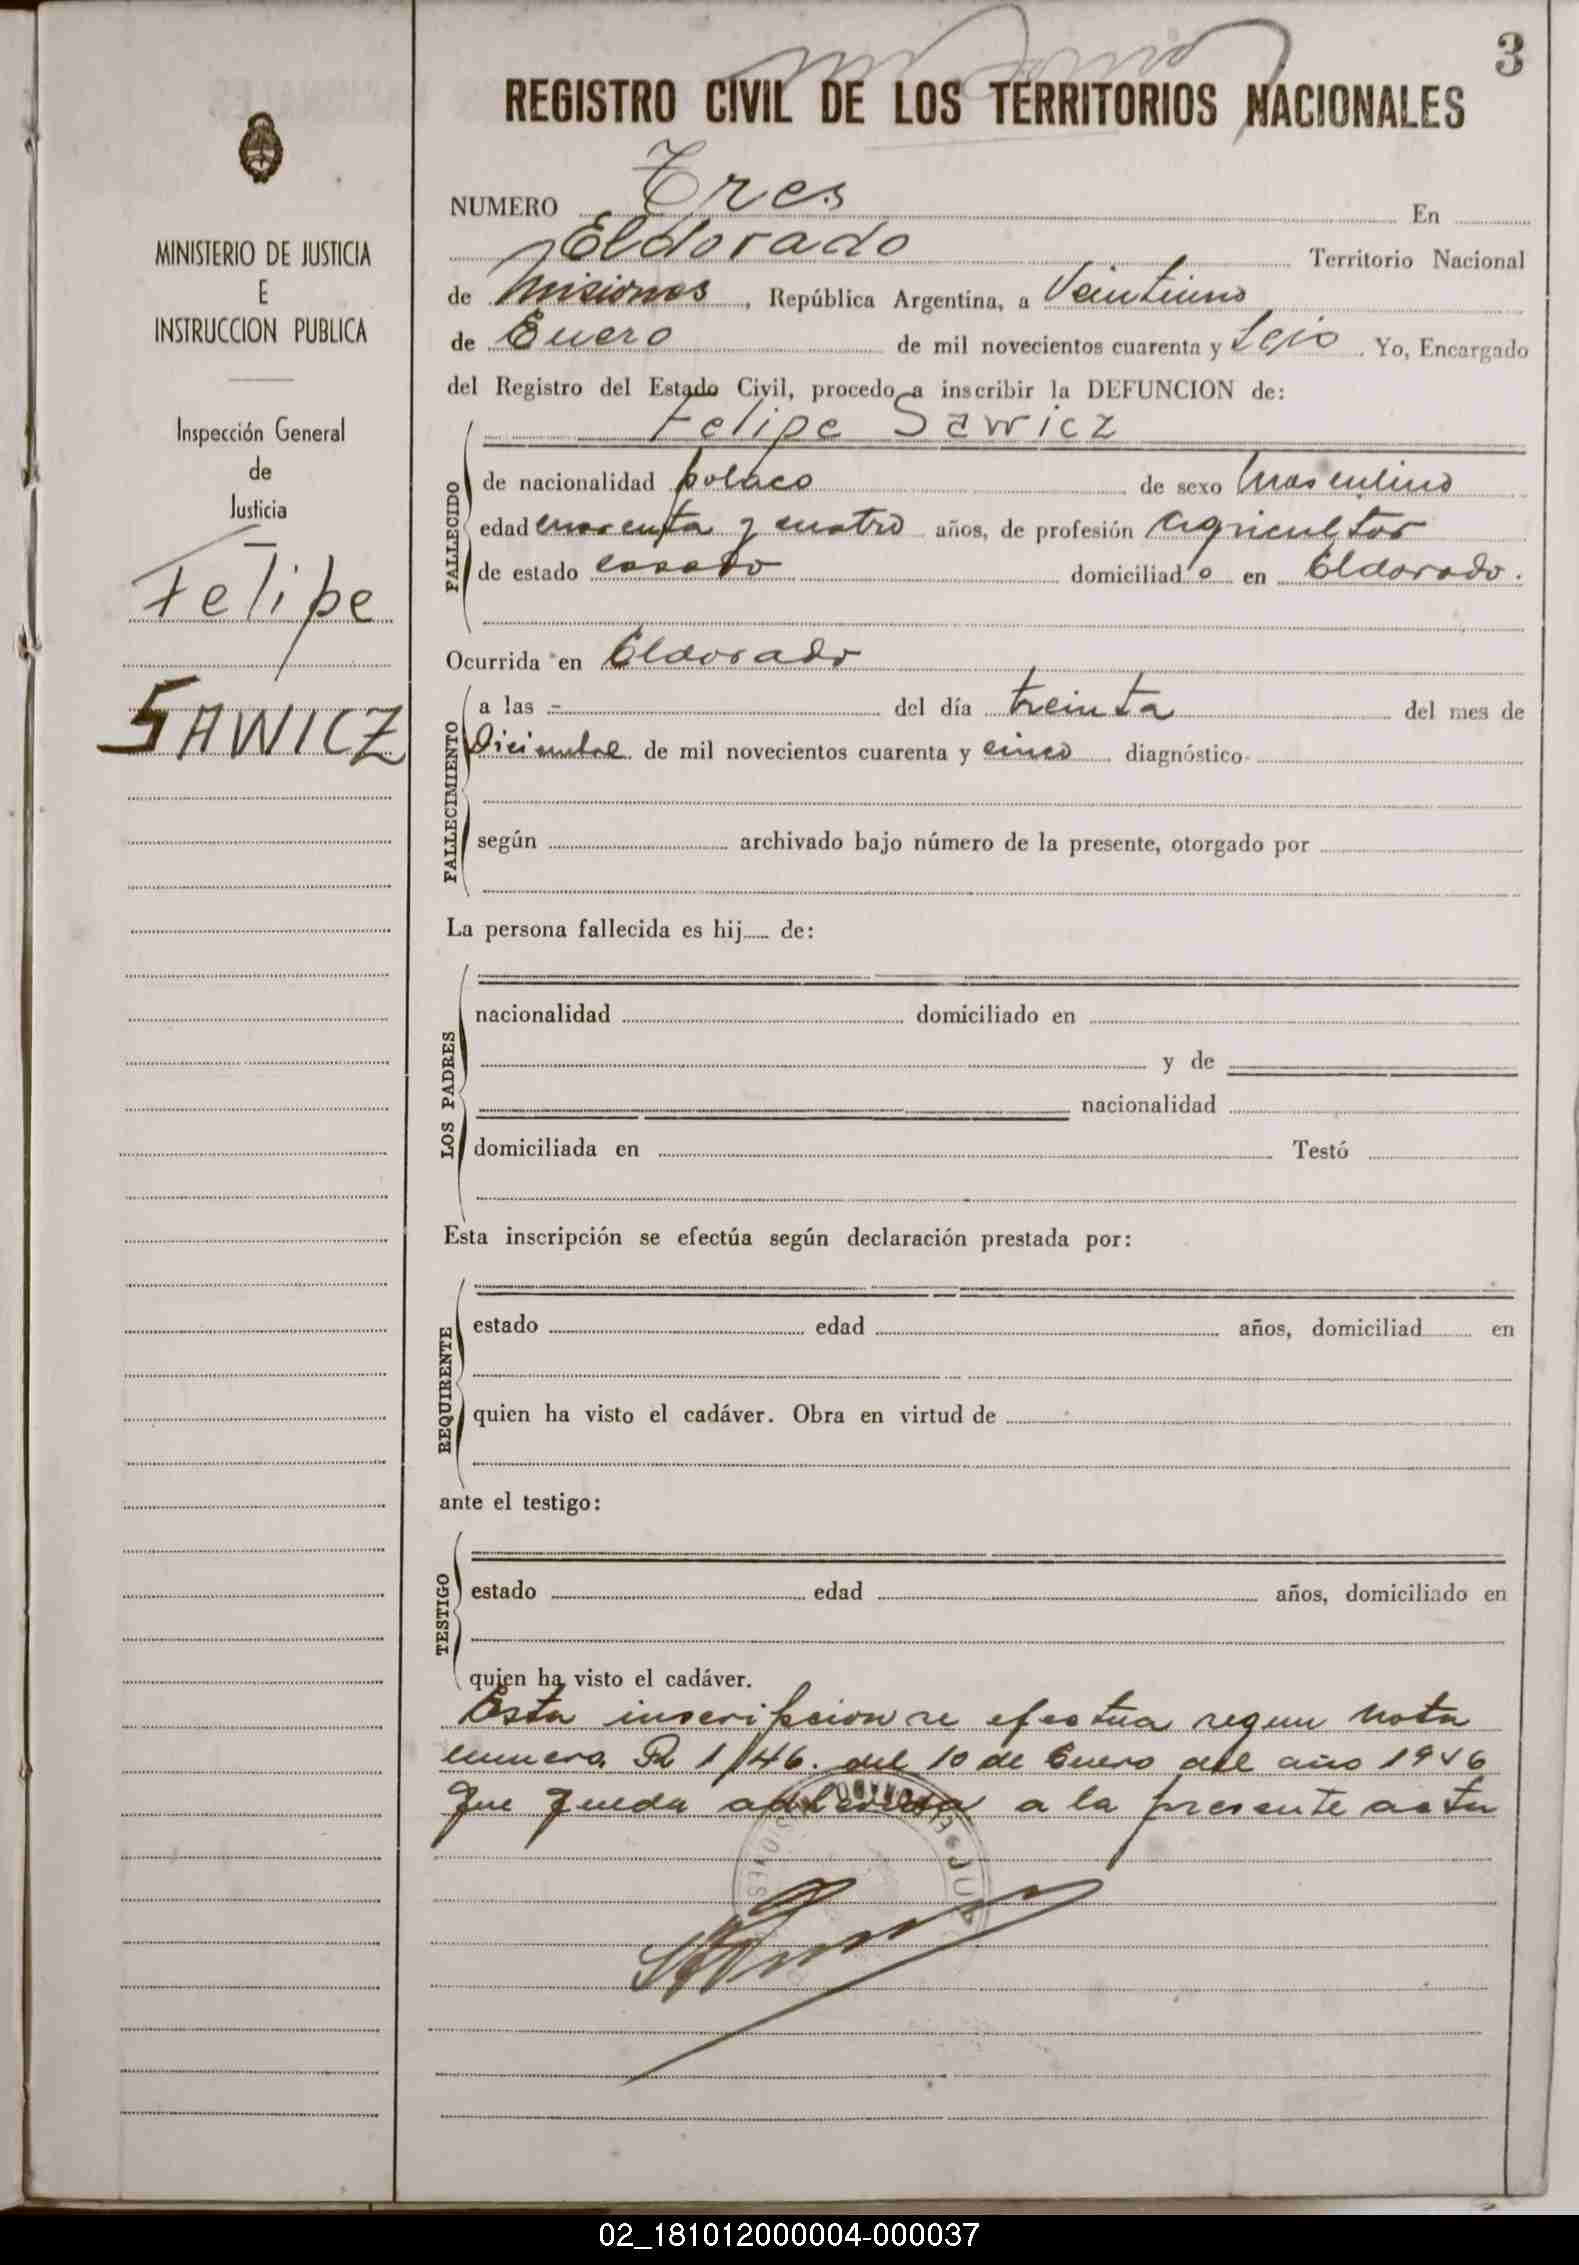 3
REGISTRO CIVIL DE LOS TERRITORIOS NACIONALES
MINISTERIO DE JUSTICIA
E
INSTRUCCION PUBLICA
Inspección General
de
Justicia
Felipe
SAWICZ
NUMERO Tres En
Eldorado Territorio Nacional
de Misiones, República Argentina, a Veintiuno
de Enero de mil novecientos cuarenta y Seis. Yo, Encargado
del Registro del Estado Civil, procedo a inscribir la DEFUNCION de:
Felipe Sawicz
FALLECIDO
de nacionalidad polaco de sexo Masculino
edad cuarenta y cuatro años, de profesión agricultor
de estado casado domiciliado en Eldorado.
Ocurrida en Eldorado
FALLECIMIENTO
a las - del día treinta del mes de
Diciembre de mil novecientos cuarenta y cinco diagnóstico
según archivado bajo número de la presente, otorgado por
La persona fallecida es hij de:
LOS PADRES
nacionalidad domiciliado en
y de
nacionalidad
domiciliada en Testó
Esta inscripción se efectúa según declaración prestada por:
REQUIRENTE
estado edad años, domiciliad en
quien ha visto el cadáver. Obra en virtud de
ante el testigo:
TESTIGO
estado edad años, domiciliado en
quien ha visto el cadáver.
Esta inscripcion se efectua segun nota
numero R 1/46. del 10 de Enero del año 1946
que queda adherida a la presente acta
02_181012000004-000037